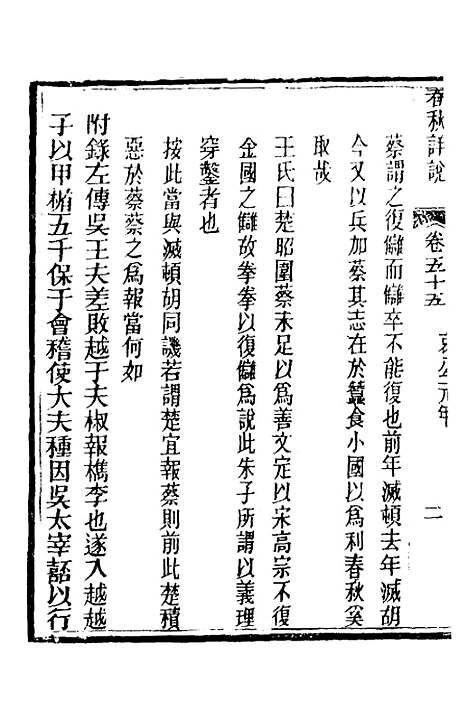 春秋詳說 卷五十五 哀公元年 二
蔡謂之復讎而讎卒不能復也前年滅頓去年滅胡
今又以兵加蔡其志在於蠶食小國以為利春秋奚
取哉
王氏曰楚昭圍蔡未足以為善文定以宋高宗不復
金國之讎故拳拳以復讎為說此朱子所謂以義理
穿鑿者也
按此當與滅頓胡同譏若謂楚宜報蔡則前此楚積
惡於蔡蔡之為報當何如
附錄左傳吳王夫差敗越于夫椒報檇李也遂入越越
子以甲楯五千保于會稽使大夫種因吳太宰嚭以行